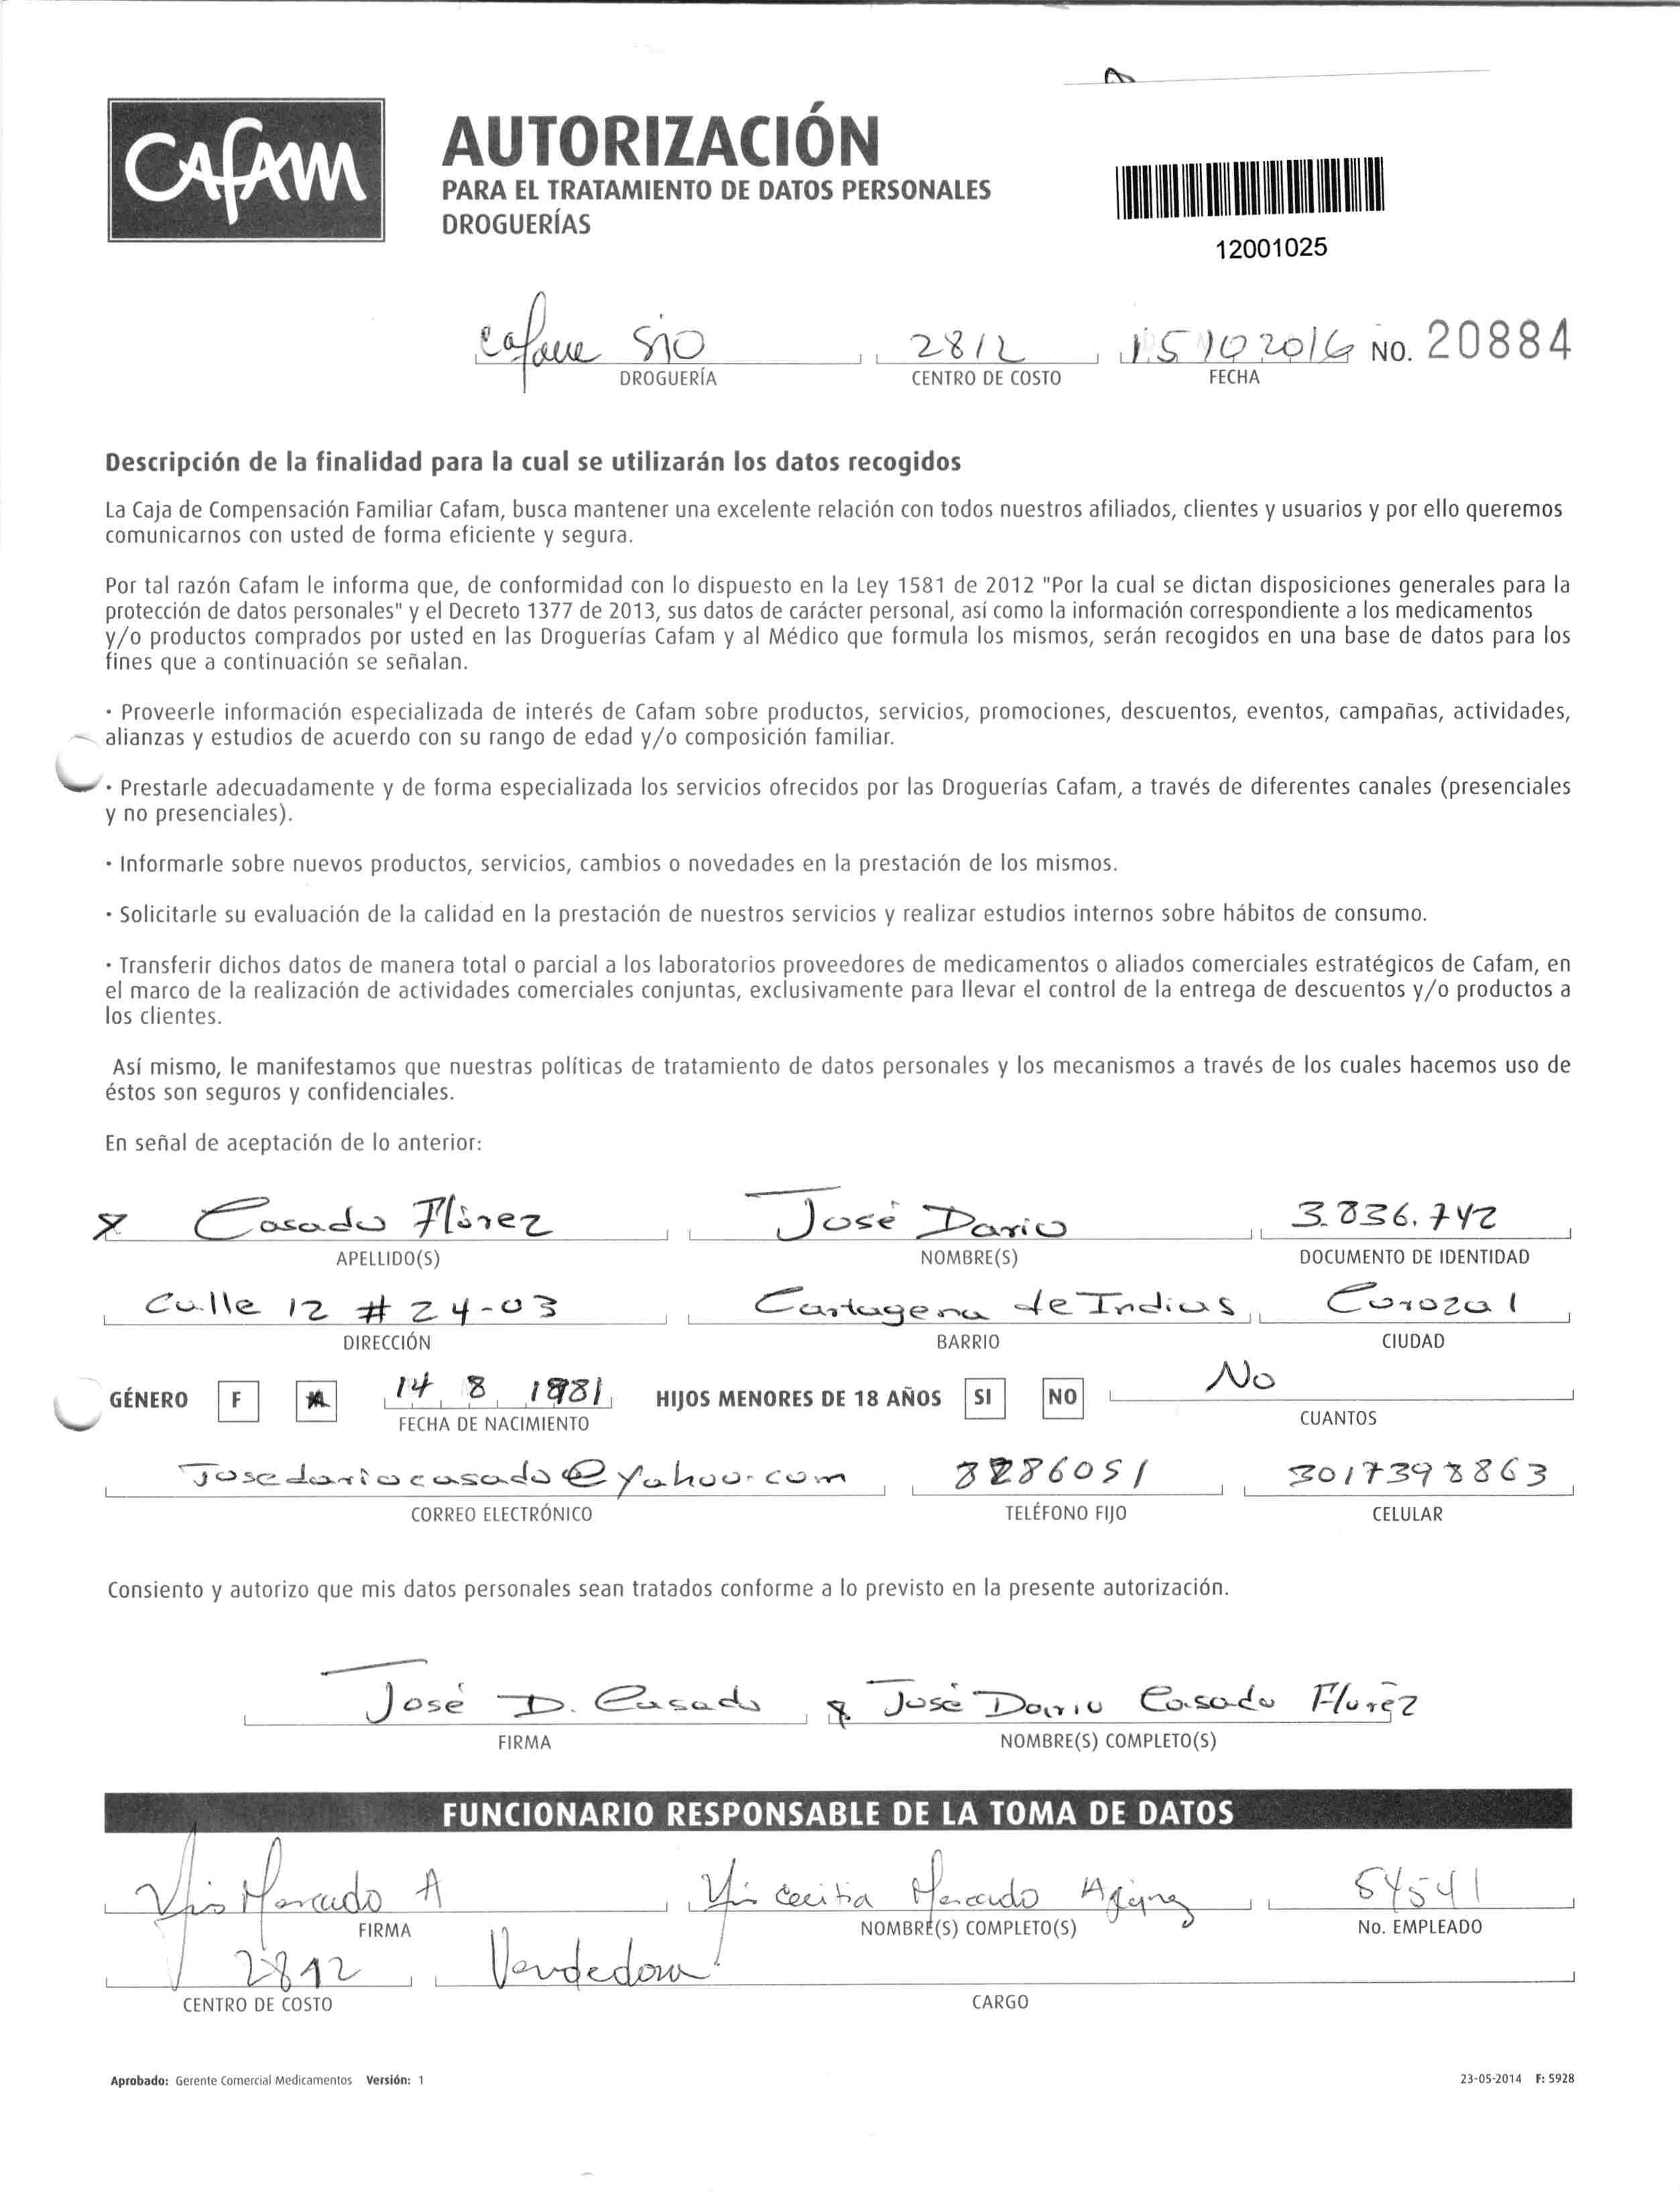 CAFAM
AUTORIZACIÓN
PARA EL TRATAMIENTO DE DATOS PERSONALES
DROGUERÍAS
12001025
2812 15 10 2016 NO. 20884
DROGUERÍA CENTRO DE COSTO FECHA
Descripción de la finalidad para la cual se utilizarán los datos recogidos
La Caja de Compensación Familiar Cafam, busca mantener una excelente relación con todos nuestros afiliados, clientes y usuarios y por ello queremos
comunicarnos con usted de forma eficiente y segura.
Por tal razón Cafam le informa que, de conformidad con lo dispuesto en la Ley 1581 de 2012 "Por la cual se dictan disposiciones generales para la
protección de datos personales" y el Decreto 1377 de 2013, sus datos de carácter personal, así como la información correspondiente a los medicamentos
y/o productos comprados por usted en las Droguerías Cafam y al Médico que formula los mismos, serán recogidos en una base de datos para los
fines que a continuación se señalan.
· Proveerle información especializada de interés de Cafam sobre productos, servicios, promociones, descuentos, eventos, campañas, actividades,
alianzas y estudios de acuerdo con su rango de edad y/o composición familiar.
· Prestarle adecuadamente y de forma especializada los servicios ofrecidos por las Droguerías Cafam, a través de diferentes canales (presenciales
y no presenciales).
· Informarle sobre nuevos productos, servicios, cambios o novedades en la prestación de los mismos.
· Solicitarle su evaluación de la calidad en la prestación de nuestros servicios y realizar estudios internos sobre hábitos de consumo.
· Transferir dichos datos de manera total o parcial a los laboratorios proveedores de medicamentos o aliados comerciales estratégicos de Cafam, en
el marco de la realización de actividades comerciales conjuntas, exclusivamente para llevar el control de la entrega de descuentos y/o productos a
los clientes.
Así mismo, le manifestamos que nuestras políticas de tratamiento de datos personales y los mecanismos a través de los cuales hacemos uso de
éstos son seguros y confidenciales.
En señal de aceptación de lo anterior:
x Casado Flórez José Dario 3.836.742
APELLIDO(S) NOMBRE(S) DOCUMENTO DE IDENTIDAD
Calle 12 # 24-03 Cartagena de Indias Corozal
DIRECCIÓN BARRIO CIUDAD
GÉNERO F M 14 8 1981 HIJOS MENORES DE 18 AÑOS SI NO No
FECHA DE NACIMIENTO CUANTOS
Josedariocasado@yahoo.com 3017398863
CORREO ELECTRÓNICO TELÉFONO FIJO CELULAR
Consiento y autorizo que mis datos personales sean tratados conforme a lo previsto en la presente autorización.
José D. Casado x José Dario Casado Flórez
FIRMA NOMBRE(S) COMPLETO(S)
FUNCIONARIO RESPONSABLE DE LA TOMA DE DATOS
Mercado A Mercado 54541
FIRMA NOMBRE(S) COMPLETO(S) No. EMPLEADO
2812 Vendedora
CENTRO DE COSTO CARGO
Aprobado: Gerente Comercial Medicamentos Versión: 1 23-05-2014 F: 5928